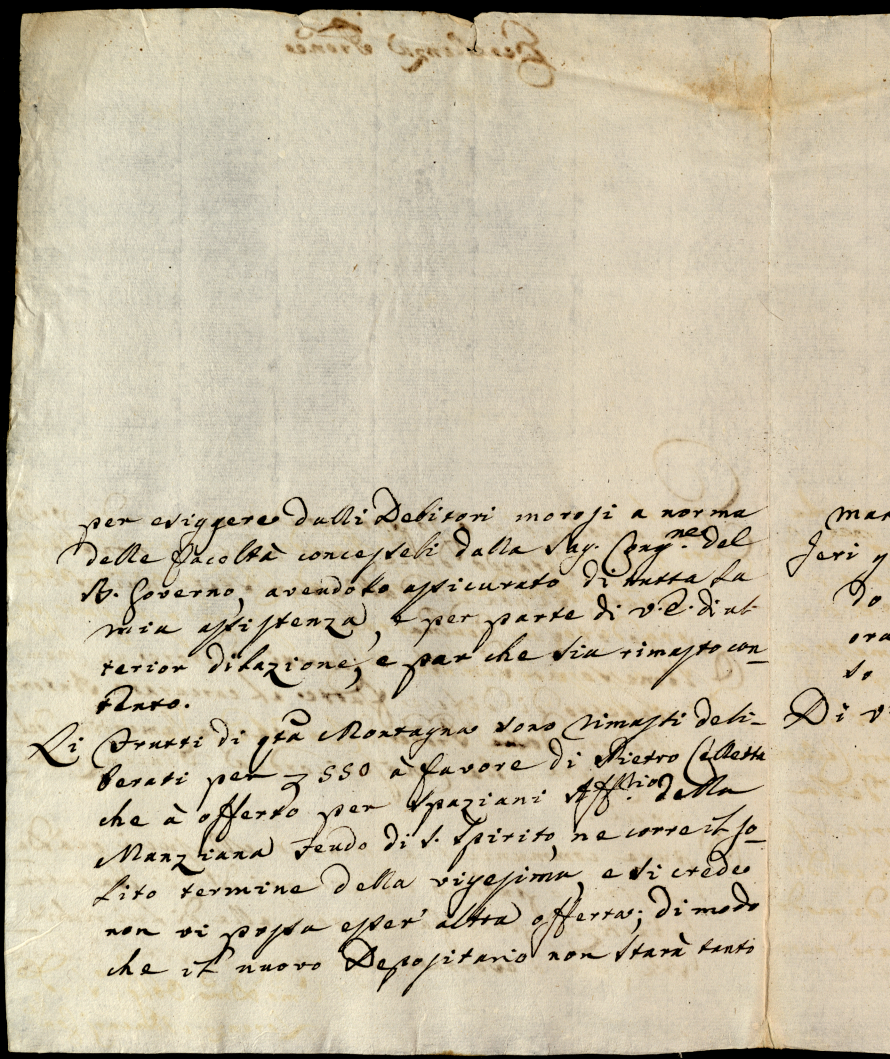 per esiggere dalli Debitori morosi a norma
delle facoltà concesseli dalla Sag. Cong.ne del
B. Governo, avendolo assicurato di tutta la
mia assistenza, e per parte di V.E. di ul-
terior dilazione, e par che sia rimasto con-
tento.
Li Frutti di q.ta Montagna sono rimasti deli-
berati per 550 à favore di Pietro
che à offerto per Spaziani Aff.rio della
Manziana Feudo di S. Spirito, ne corre il so-
lito termine della vigesima, e si crede
non vi possa esser altra offerta; di modo
che il nuovo Depositario non starà tanto
mar
Jeri
do
ora
so
Di V